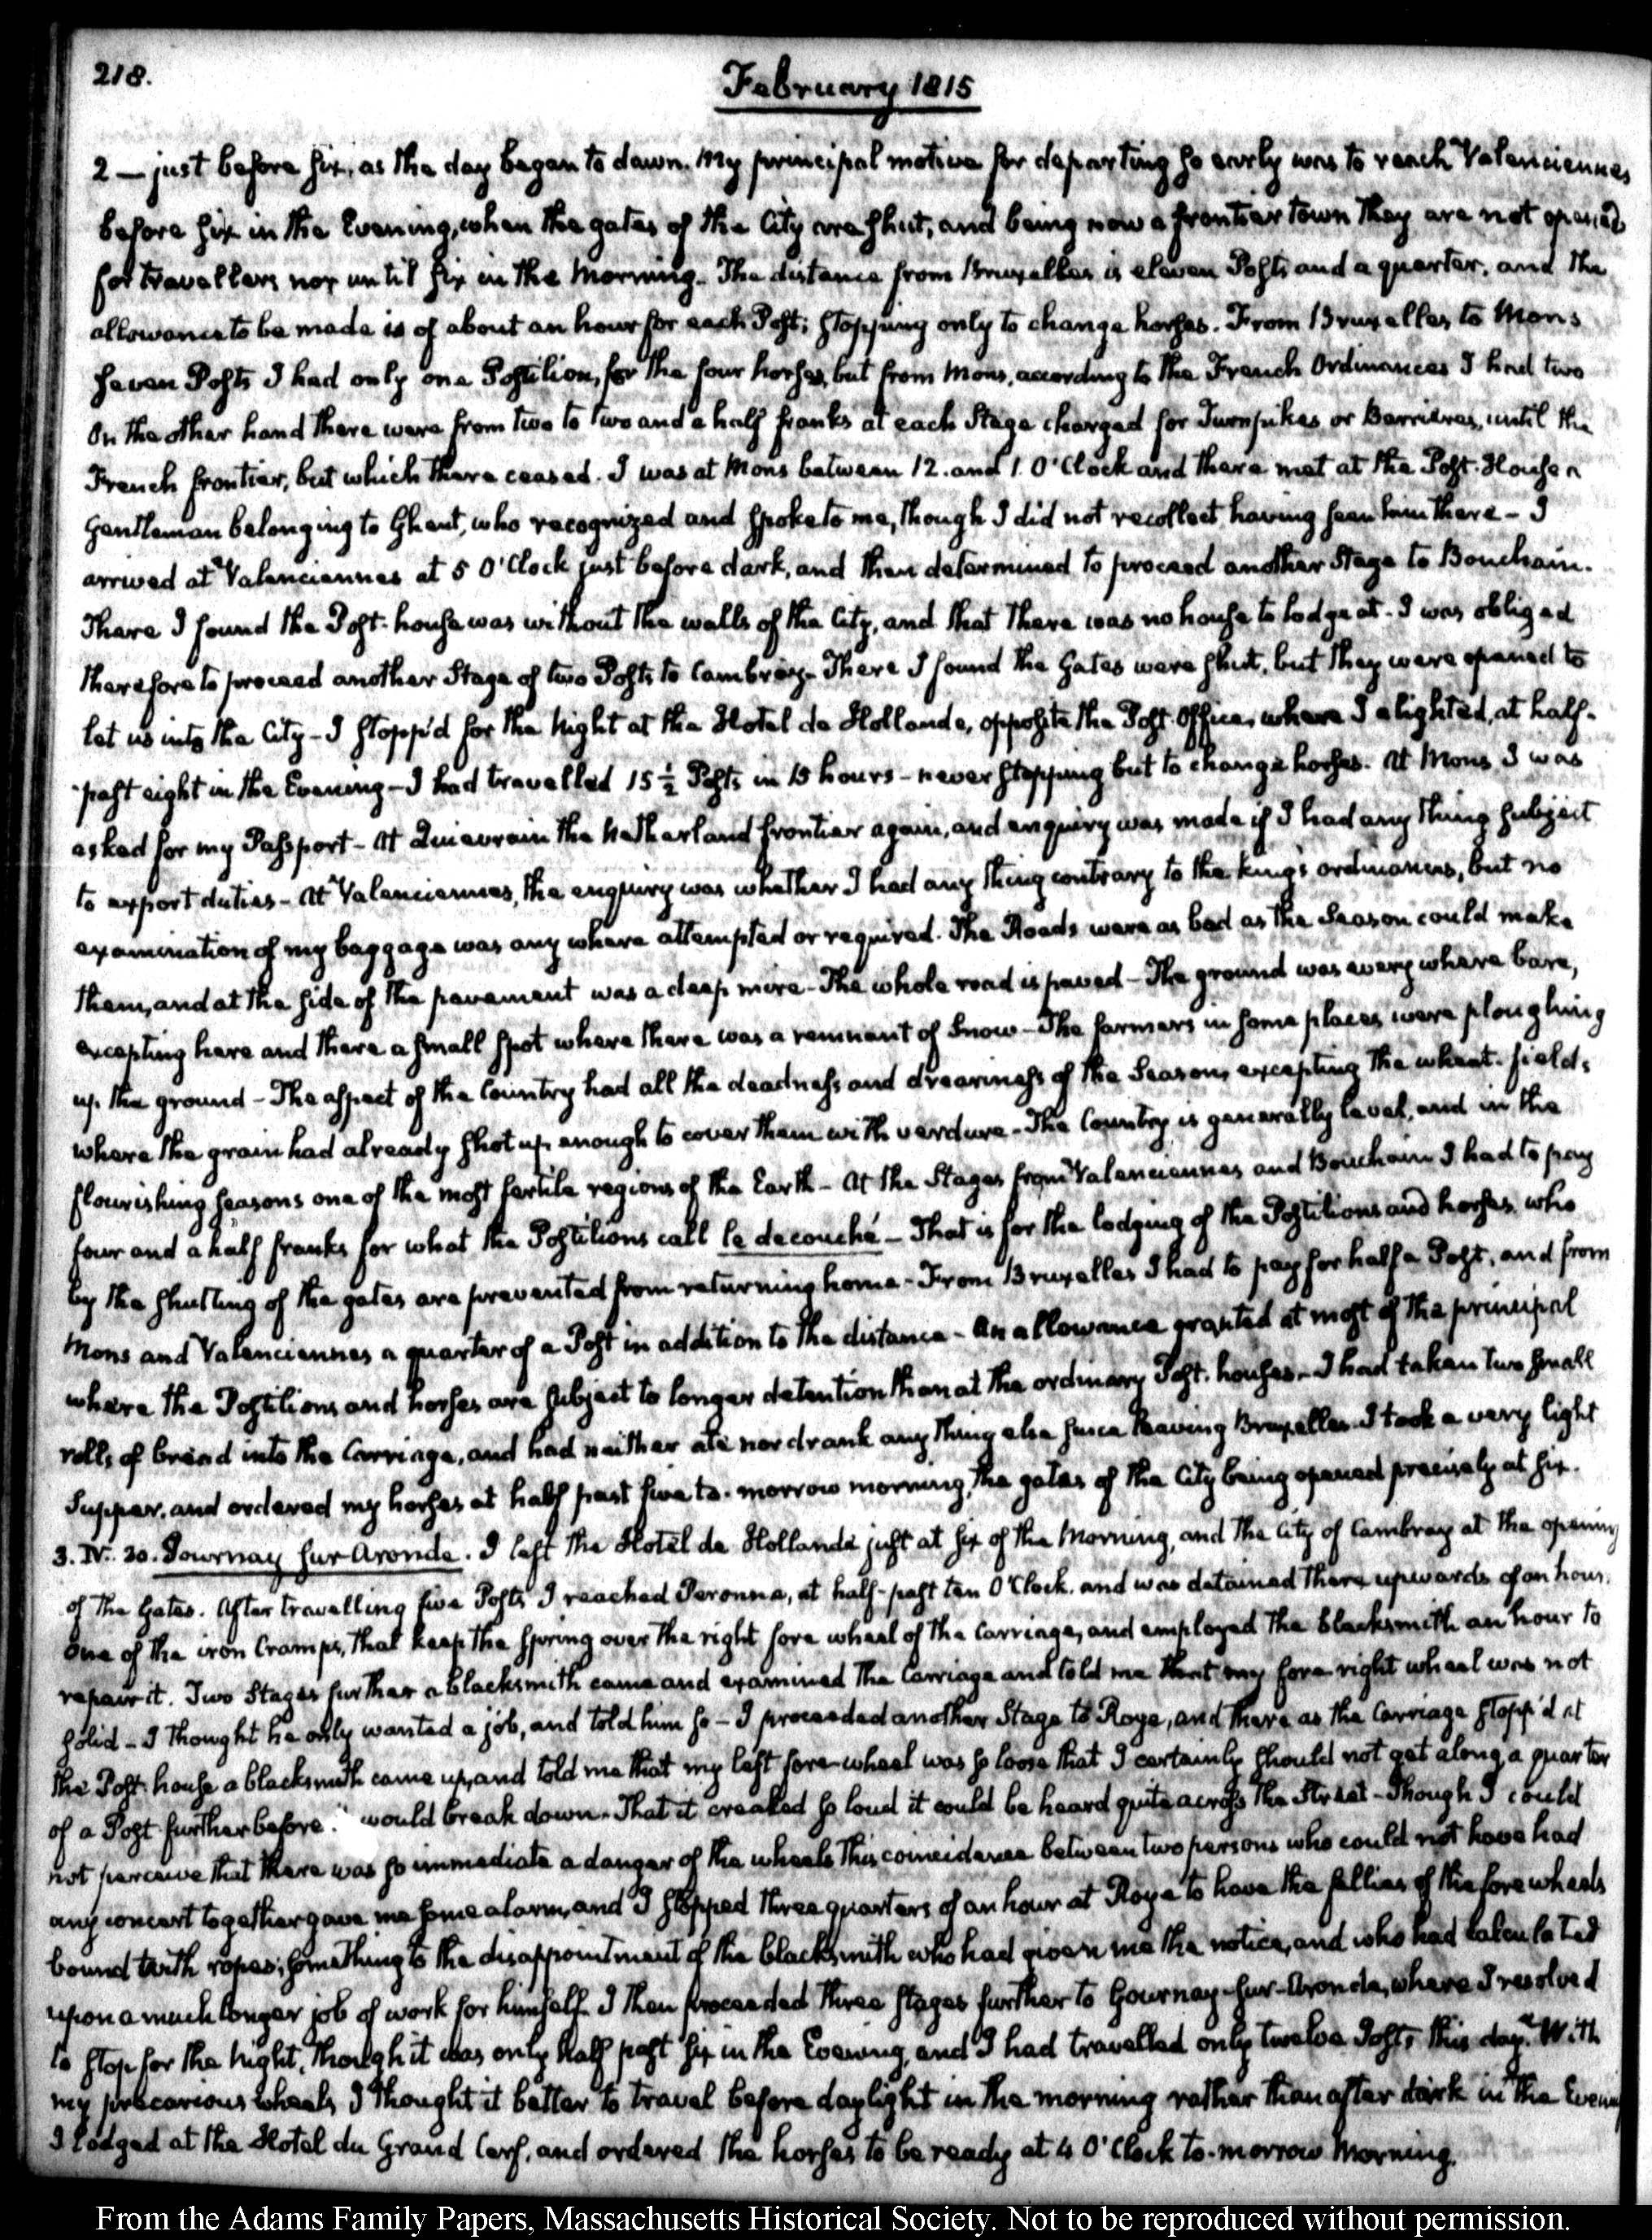 218.
February 1815
2 — just before six, as the day began to dawn. My principal motive for departing so early was to reach Valenciennes
before six in the Evening, when the gates of the City are shut, and being now a frontier town they are not opened
for travellers nor until six in the Morning. The distance from Bruxelles is eleven Posts and a quarter, and the
allowance to be made is of about an hour for each Post; stopping only to change horses. From Bruxelles to Mons
seven Posts I had only one Postilion, for the four horses, but from Mons, according to the French Ordinances I had two
On the other hand there were from two to two and a half franks at each Stage charged for Turnpikes or Barrieres, until the
French frontier, but which there ceased. I was at Mons between 12. and 1. O'Clock and there met at the Post-House a
Gentleman belonging to Ghent, who recognized and spoke to me, though I did not recollect having seen him there - I
arrived at Valenciennes at 5 O'Clock just before dark, and then determined to proceed another Stage to Bouchain.
There I found the Post-house was without the walls of the City, and that there was no house to lodge at. I was obliged
therefore to proceed another Stage of two Posts to Cambray - There I found the Gates were shut, but they were opened to
let us into the City - I stopp'd for the Night at the Hotel de Hollande, opposite the Post Office, where I alighted, at half-
past eight in the Evening - I had travelled 15½ Posts in 15 hours - never stopping but to change horses. At Mons I was
asked for my Passport - At Quievrain the Netherland frontier again, and enquiry was made if I had any thing subject
to export duties - At Valenciennes, the enquiry was whether I had any thing contrary to the King's ordinances, but no
examination of my baggage was any where attempted or required. The Roads were as bad as the Season could make
them, and at the side of the pavement was a deep mire - The whole road is paved - The ground was every where bare,
excepting here and there a small spot where there was a remnant of Snow - The farmers in some places were ploughing
up the ground - The aspect of the Country had all the deadness and dreariness of the Season, excepting the wheat-fields
where the grain had already shot up enough to cover them with verdure - The Country is generally level, and in the
flourishing seasons one of the most fertile regions of the Earth - At the Stages from Valenciennes and Bouchain I had to pay
four and a half franks for what the Postilions call le decouché - That is for the lodging of the Postilions and horses, who
by the shutting of the gates are prevented from returning home - From Bruxelles I had to pay for half a Post, and from
Mons and Valenciennes a quarter of a Post in addition to the distance - An allowance granted at most of the principal
where the Postilions and horses are subject to longer detention than at the ordinary Post-houses - I had taken two small
rolls of bread into the Carriage, and had neither ate nor drank any thing else since leaving Bruxelles. I took a very light
Supper, and ordered my horses at half past five to-morrow morning, the gates of the City being opened precisely at six.
3. IV: 30. Gournay sur Aronde. I left the Hotel de Hollande just at six of the Morning, and the City of Cambray at the opening
of the Gates. After travelling five Posts I reached Peronne, at half-past ten O'Clock, and was detained there upwards of an hour.
One of the iron Cramps, that keep the spring over the right fore wheel of the Carriage, and employed the blacksmith an hour to
repair it. Two Stages further a blacksmith came and examined the Carriage and told me that my fore right wheel was not
solid - I thought he only wanted a job, and told him so - I proceeded another Stage to Roye, and there as the Carriage stopp'd at
the Post-house a blacksmith came up, and told me that my left fore-wheel was so loose that I certainly should not get along a quarter
of a Post further before would break down. That it creaked so loud it could be heard quite across the Street - Though I could
not perceive that there was so immediate a danger of the wheels this coincidence between two persons who could not have had
any concert together gave me some alarm, and I stopped three quarters of an hour at Roye to have the fellies of the fore wheels
bound with ropes; something to the disappointment of the blacksmith who had given me the notice, and who had calculated
upon a much longer job of work for himself. I then proceeded three stages further to Gournay-sur-Aronde, where I resolved
to stop for the Night, though it was only half past six in the Evening, and I had travelled only twelve Posts this day. With
my precarious wheels, I thought it better to travel before daylight in the morning rather than after dark in the Evening
I lodged at the Hotel du Grand Cerf, and ordered the horses to be ready at 4 O'Clock to-morrow Morning.
From the Adams Family Papers, Massachusetts Historical Society. Not to be reproduced without permission.